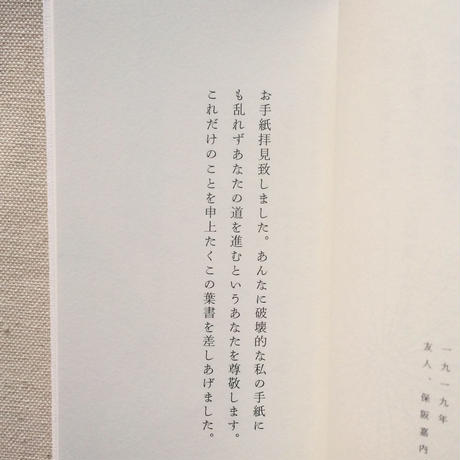 お手紙拝見致しました。あんなに破壊的な私の手紙に
も乱れずあなたの道を進むというあなたを尊敬します。
これだけのことを申上たくこの葉書を差しあげました。
一九一九年
友人、保阪嘉内